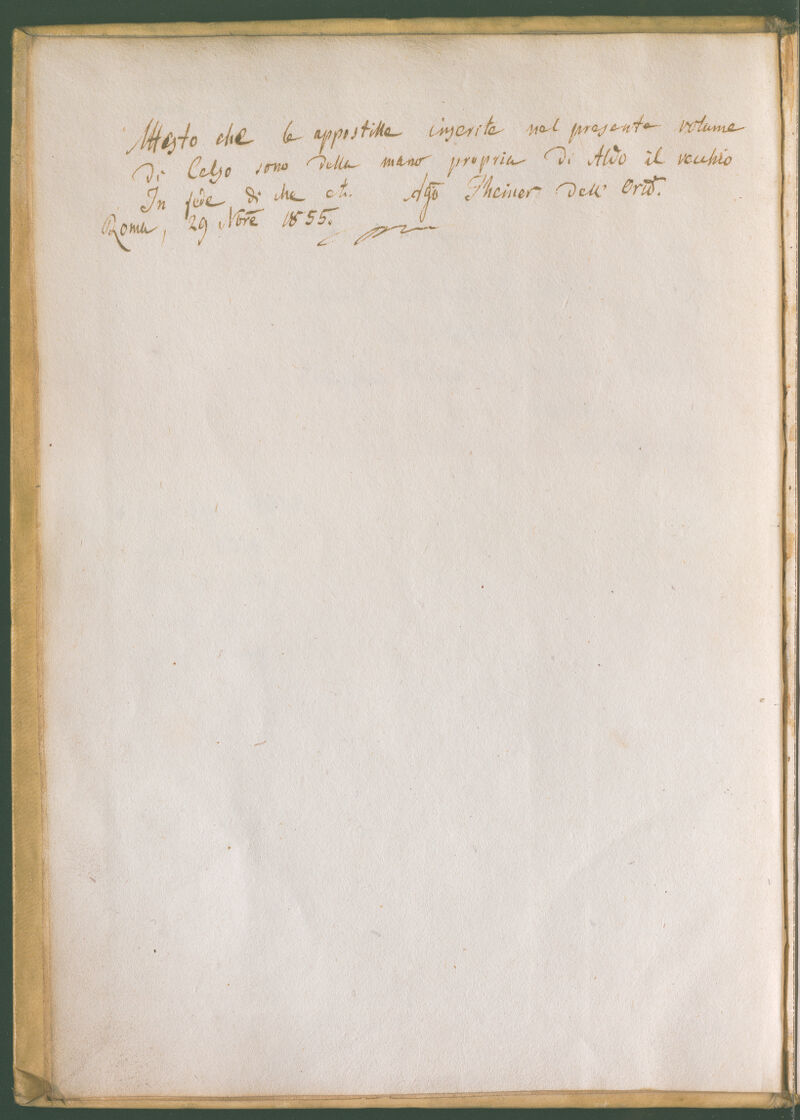 Attesto che le appostille inserite nel presente volume
di Celso sono della mano propria di Aldo il vecchio
In fede di che etc. Agō Theiner dell' Ortō.
Roma, 29 Nōre 1855.